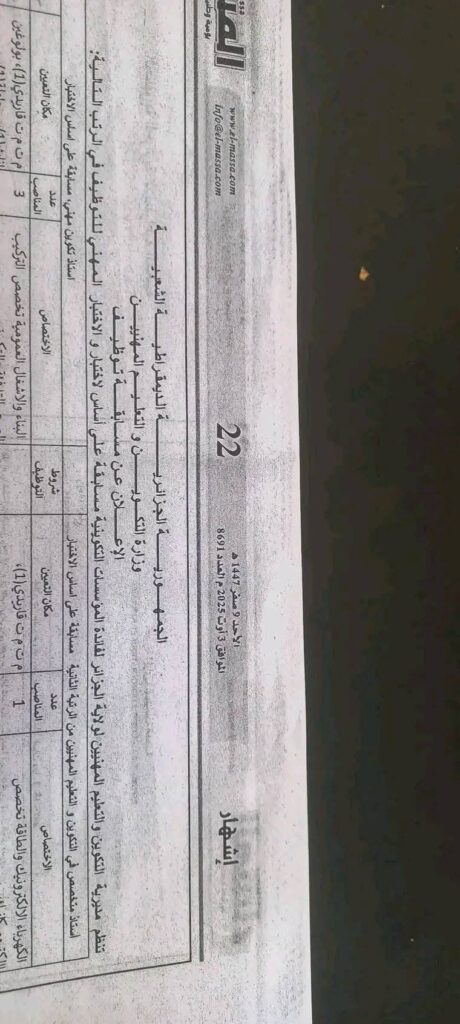 إشهار
الأحد 9 صفر 1447 هـ
الموافق 3 أوت 2025 م العدد 8691
22
www.el-massa.com
info@el-massa.com
الجمهورية الجزائرية الديمقراطية الشعبية
وزارة التكوين و التعليم المهنيين
الإعلان عن مسابقة توظيف
تنظم مديرية التكوين والتعليم المهنيين لولاية الجزائر لفائدة المؤسسات التكوينية مسابقة على أساس لاختبار و الاختبار المهني للتوظيف في الرتب التالية:
استاذ متخصص في التكوين و التعليم المهنيين من الرتبة الثانية مسابقة على اساس الاختبار
استاذ تكوين مهني، مسابقة على اساس الاختبار
الاختصاص
عدد المناصب
مكان التعيين
شروط التوظيف
الاختصاص
عدد المناصب
مكان التعيين
الكهرباء الالكترونيك والطاقة تخصص
1
م ت م ت قاريدي(1)،
البناء والاشغال العمومية تخصص التركيب
3
م ت م ت قاريدي(1)، بولوغين